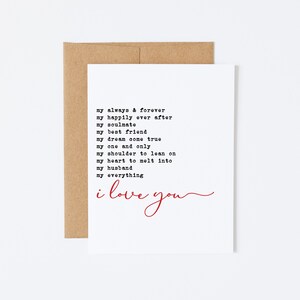 my always & forever
my happily ever after
my soulmate
my best friend
my dream come true
my one and only
my shoulder to lean on
my heart to melt into
my husband
my everything
i love you